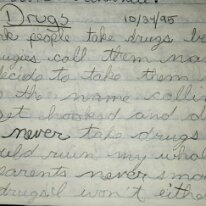 Drugs 10/24/95
people take drugs be
call them na
decide to take them
the name callin
et hooked and d
never take drugs
uld ruin my whol
parents never smo
drugs I won't eithe